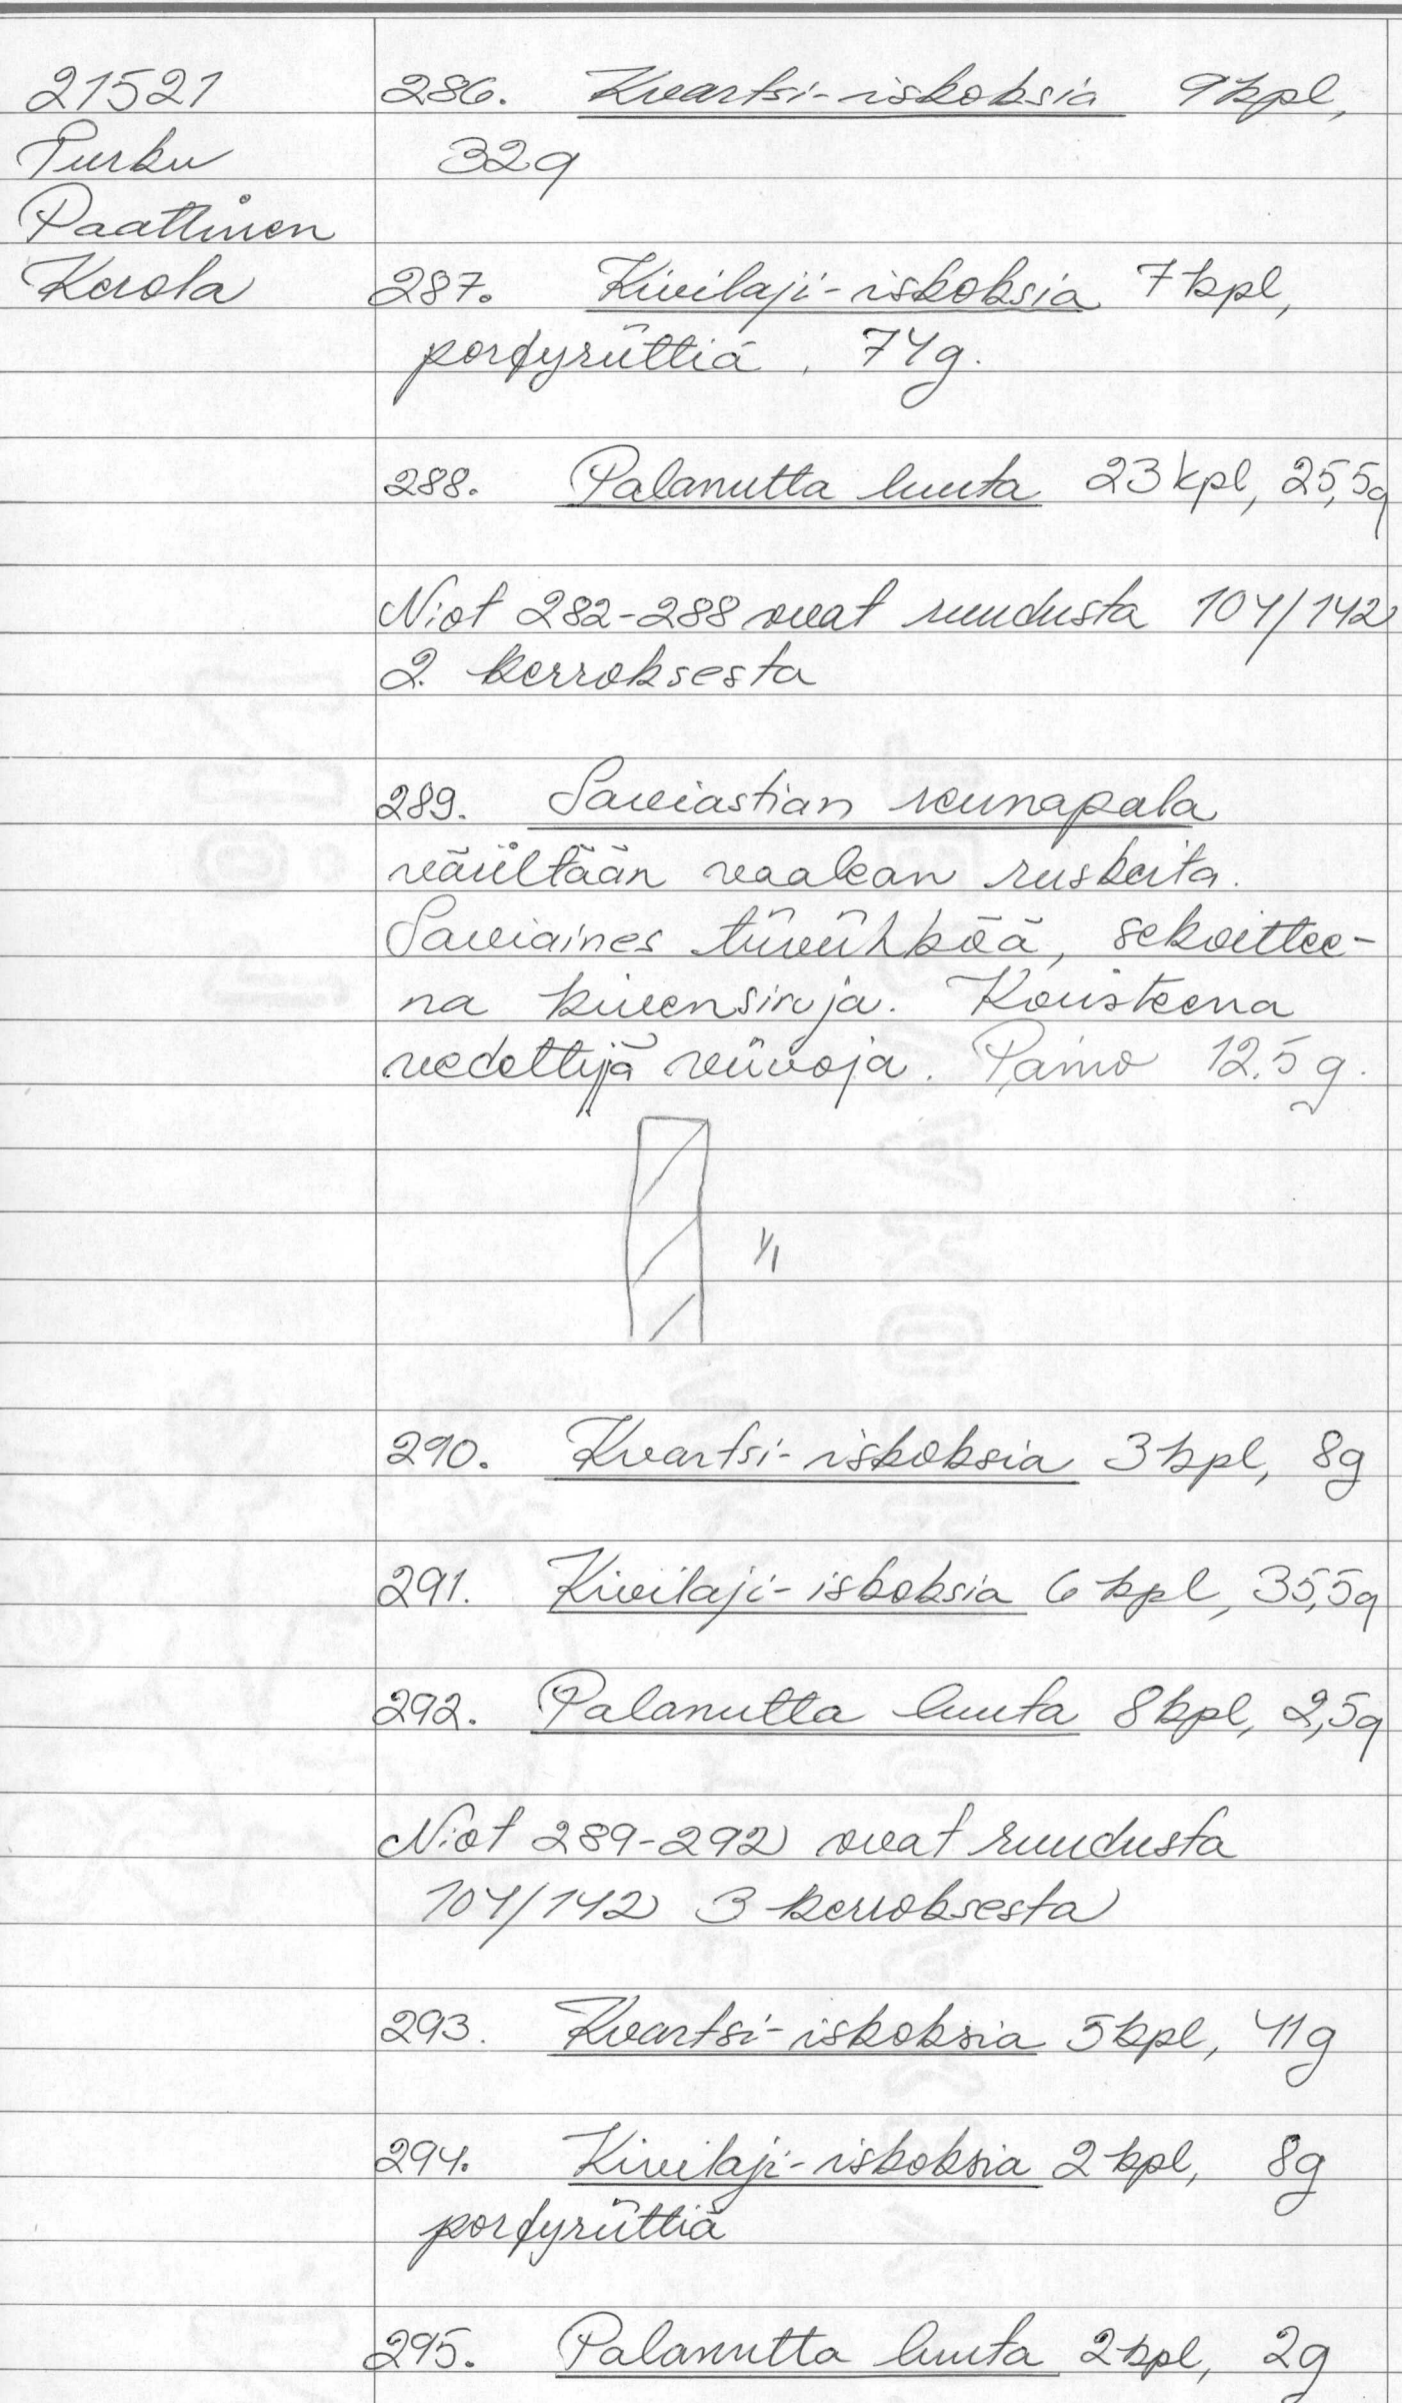 21521
Turku
Paattinen
Kerola
286. Kvartsi-iskoksia 9 kpl,
32g
287. Kivilaji-iskoksia 7 kpl,
porfyriittiä. 74g.
288. Palanutta luuta 23 kpl, 25,5g
N:ot 282-288 ovat ruudusta 104/142
2. kerroksesta
289. Saviastian reunapala
väriltään vaalean ruskeita.
Saviaines tiiviihköä, sekoittee-
na kivensiruja. Koristeena
vedettyjä viivoja. Paino 12.5 g.
1/1
290. Kvartsi-iskoksia 3 kpl, 8g
291. Kivilaji-iskoksia 6 kpl, 35,5g
292. Palanutta luuta 8 kpl, 2,5g
N:ot 289-292 ovat ruudusta
104/142 3 kerroksesta
293. Kvartsi-iskoksia 5 kpl, 41g
294. Kivilaji-iskoksia 2 kpl, 8g
porfyriittiä
295. Palanutta luuta 2 kpl, 2g